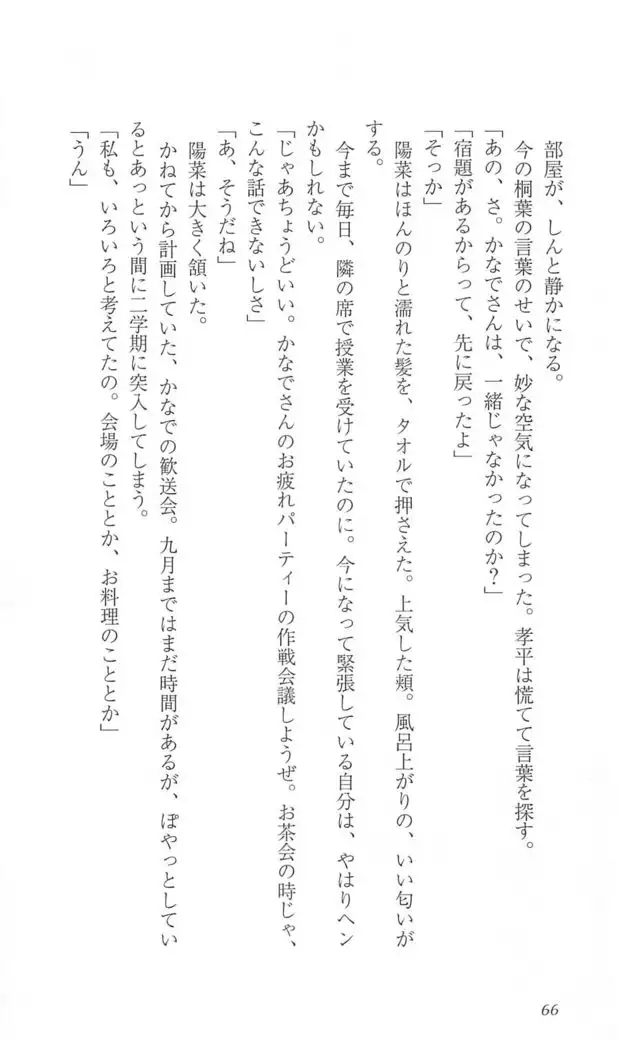 部屋が、しんと静かになる。
今の桐葉の言葉のせいで、妙な空気になってしまった。孝平は慌てて言葉を探す。
「あの、さ。かなでさんは、一緒じゃなかったのか?」
「宿題があるからって、先に戻ったよ」
「そっか」
陽菜はほんのりと濡れた髪を、タオルで押さえた。上気した頬。風呂上がりの、いい匂いが
する。
今まで毎日、隣の席で授業を受けていたのに。今になって緊張している自分は、やはりヘン
かもしれない。
「じゃあちょうどいい。かなでさんのお疲れパーティーの作戦会議しようぜ。お茶会の時じゃ、
こんな話できないしさ」
「あ、そうだね」
陽菜は大きく頷いた。
かねてから計画していた、かなでの歓送会。九月まではまだ時間があるが、ぼやっとしてい
るとあっという間に二学期に突入してしまう。
「私も、いろいろと考えてたの。会場のこととか、お料理のこととか」
「うん」
66